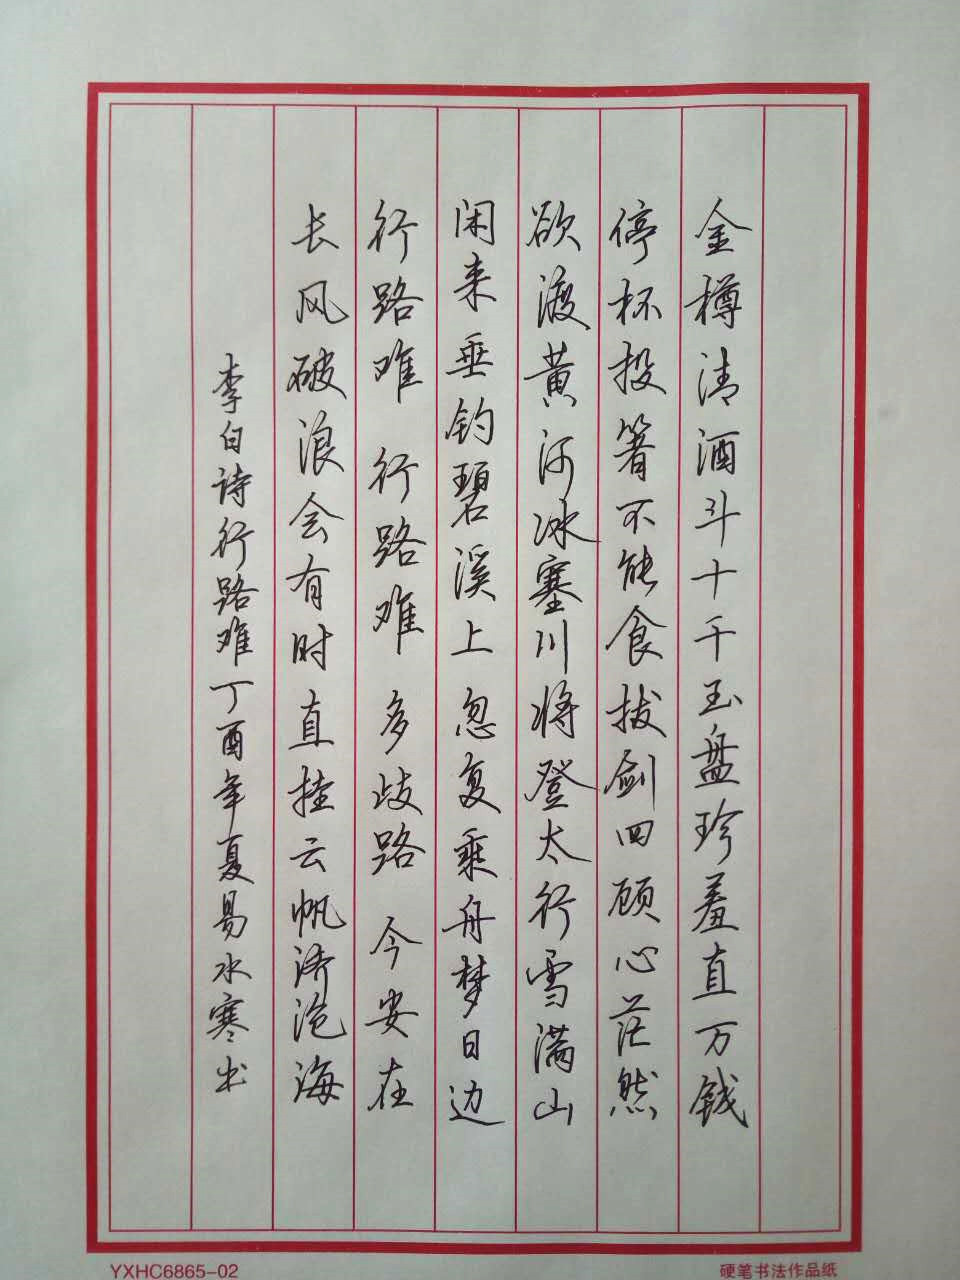 金樽清酒斗十千玉盘珍羞直万钱
停杯投箸不能食拔剑四顾心茫然
欲渡黄河冰塞川将登太行雪满山
闲来垂钓碧溪上忽复乘舟梦日边
行路难 行路难 多歧路 今安在
长风破浪会有时直挂云帆济沧海
李白诗行路难丁酉年夏易水寒书
YXHC6865-02
硬笔书法作品纸